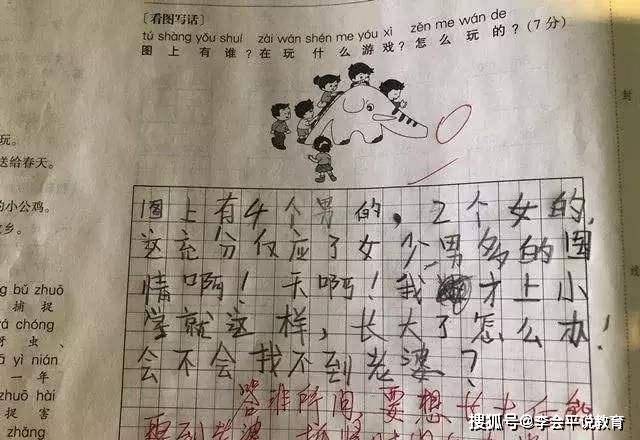 ［看图写话］
tú shàng yǒu shuí zài wán shén me yóu xì zěn me wán de
图上有谁？在玩什么游戏？怎么玩的？(7分)
封
线
玩。
送给春天。
的小公鸡。
乡。
ng bǔ zhuō
捕捉
chóng
虫、
yì nián
一年
zhuō hài
捉害
zhāng
图上有4个男的，2个女的，
这充分仅应了女少男多的国
情啊！天啊！我才上小
学就这样，长大了怎么办！
会不会找不到老婆？
答非所问，要想长大
搜狐号@李会平说教育